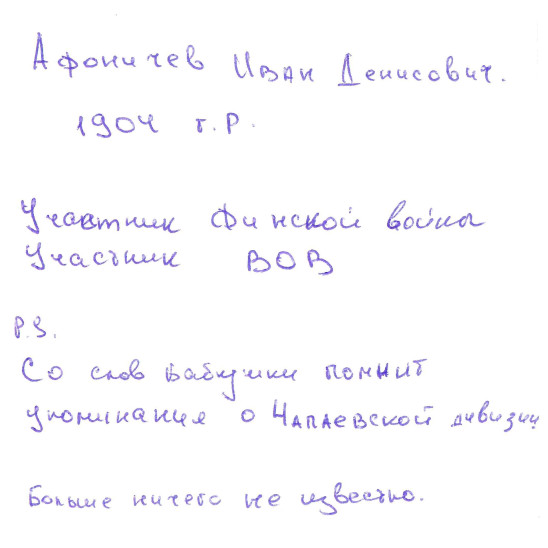 Афоничев Иван Денисович.
1904 г.р.
Участник Финской войны
Участник ВОВ
P.S.
Со слов бабушки помнит
упоминания о Чапаевской дивизии
Больше ничего не известно.